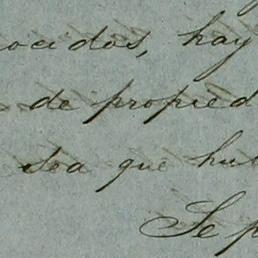 ocidos, hay
de propied
sea que hub
Se p